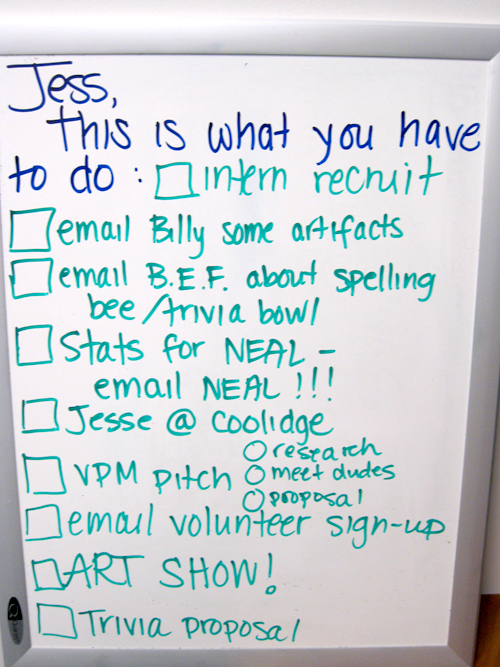 Jess,
This is what you have
to do: intern recruit
email Billy some artifacts
email B.E.F. about spelling
bee/trivia bowl
Stats for NEAL -
email NEAL!!!
Jesse @ Coolidge
research
VPM pitch meet dudes
proposal
email volunteer sign-up
ART SHOW!
Trivia proposal